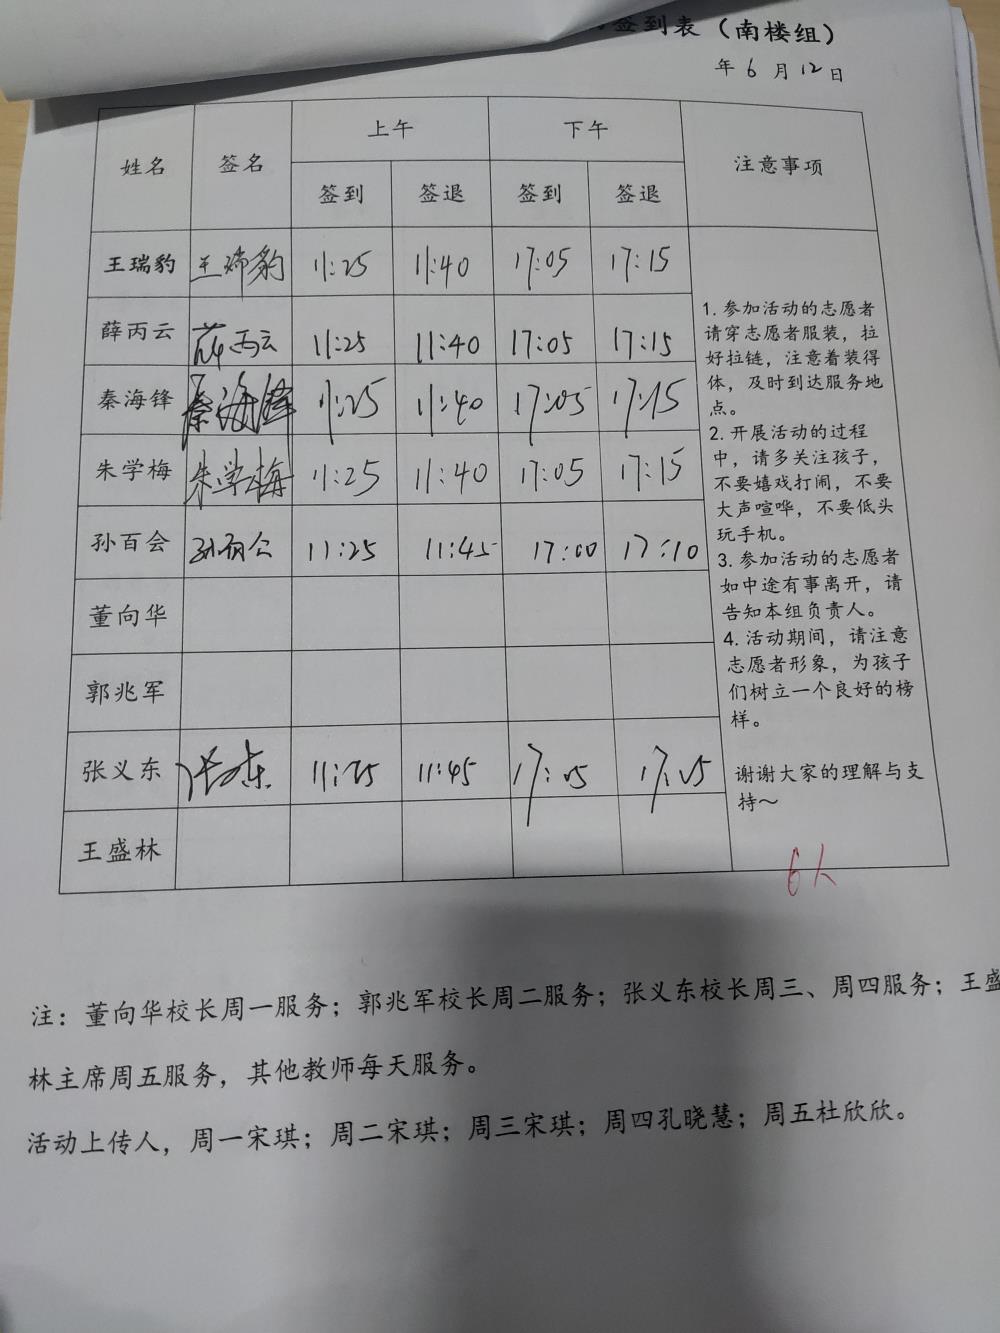 签到表（南楼组）
年 6 月 12 日
姓名 签名 上午 下午 注意事项
签到 签退 签到 签退
王瑞豹 王瑞豹 11:25 11:40 17:05 17:15
薛丙云 薛丙云 11:25 11:40 17:05 17:15
秦海锋 秦海锋 11:25 11:40 17:05 17:15
朱学梅 朱学梅 11:25 11:40 17:05 17:15
孙百会 孙百会 11:25 11:45 17:00 17:10
董向华
郭兆军
张义东 张义东 11:25 11:45 17:05
王盛林
1. 参加活动的志愿者
请穿志愿者服装，拉
好拉链，注意着装得
体，及时到达服务地
点。
2. 开展活动的过程
中，请多关注孩子，
不要嬉戏打闹，不要
大声喧哗，不要低头
玩手机。
3. 参加活动的志愿者
如中途有事离开，请
告知本组负责人。
4. 活动期间，请注意
志愿者形象，为孩子
们树立一个良好的榜
样。
谢谢大家的理解与支
持～
6人
注：董向华校长周一服务；郭兆军校长周二服务；张义东校长周三、周四服务；王盛
林主席周五服务，其他教师每天服务。
活动上传人，周一宋琪；周二宋琪；周三宋琪；周四孔晓慧；周五杜欣欣。